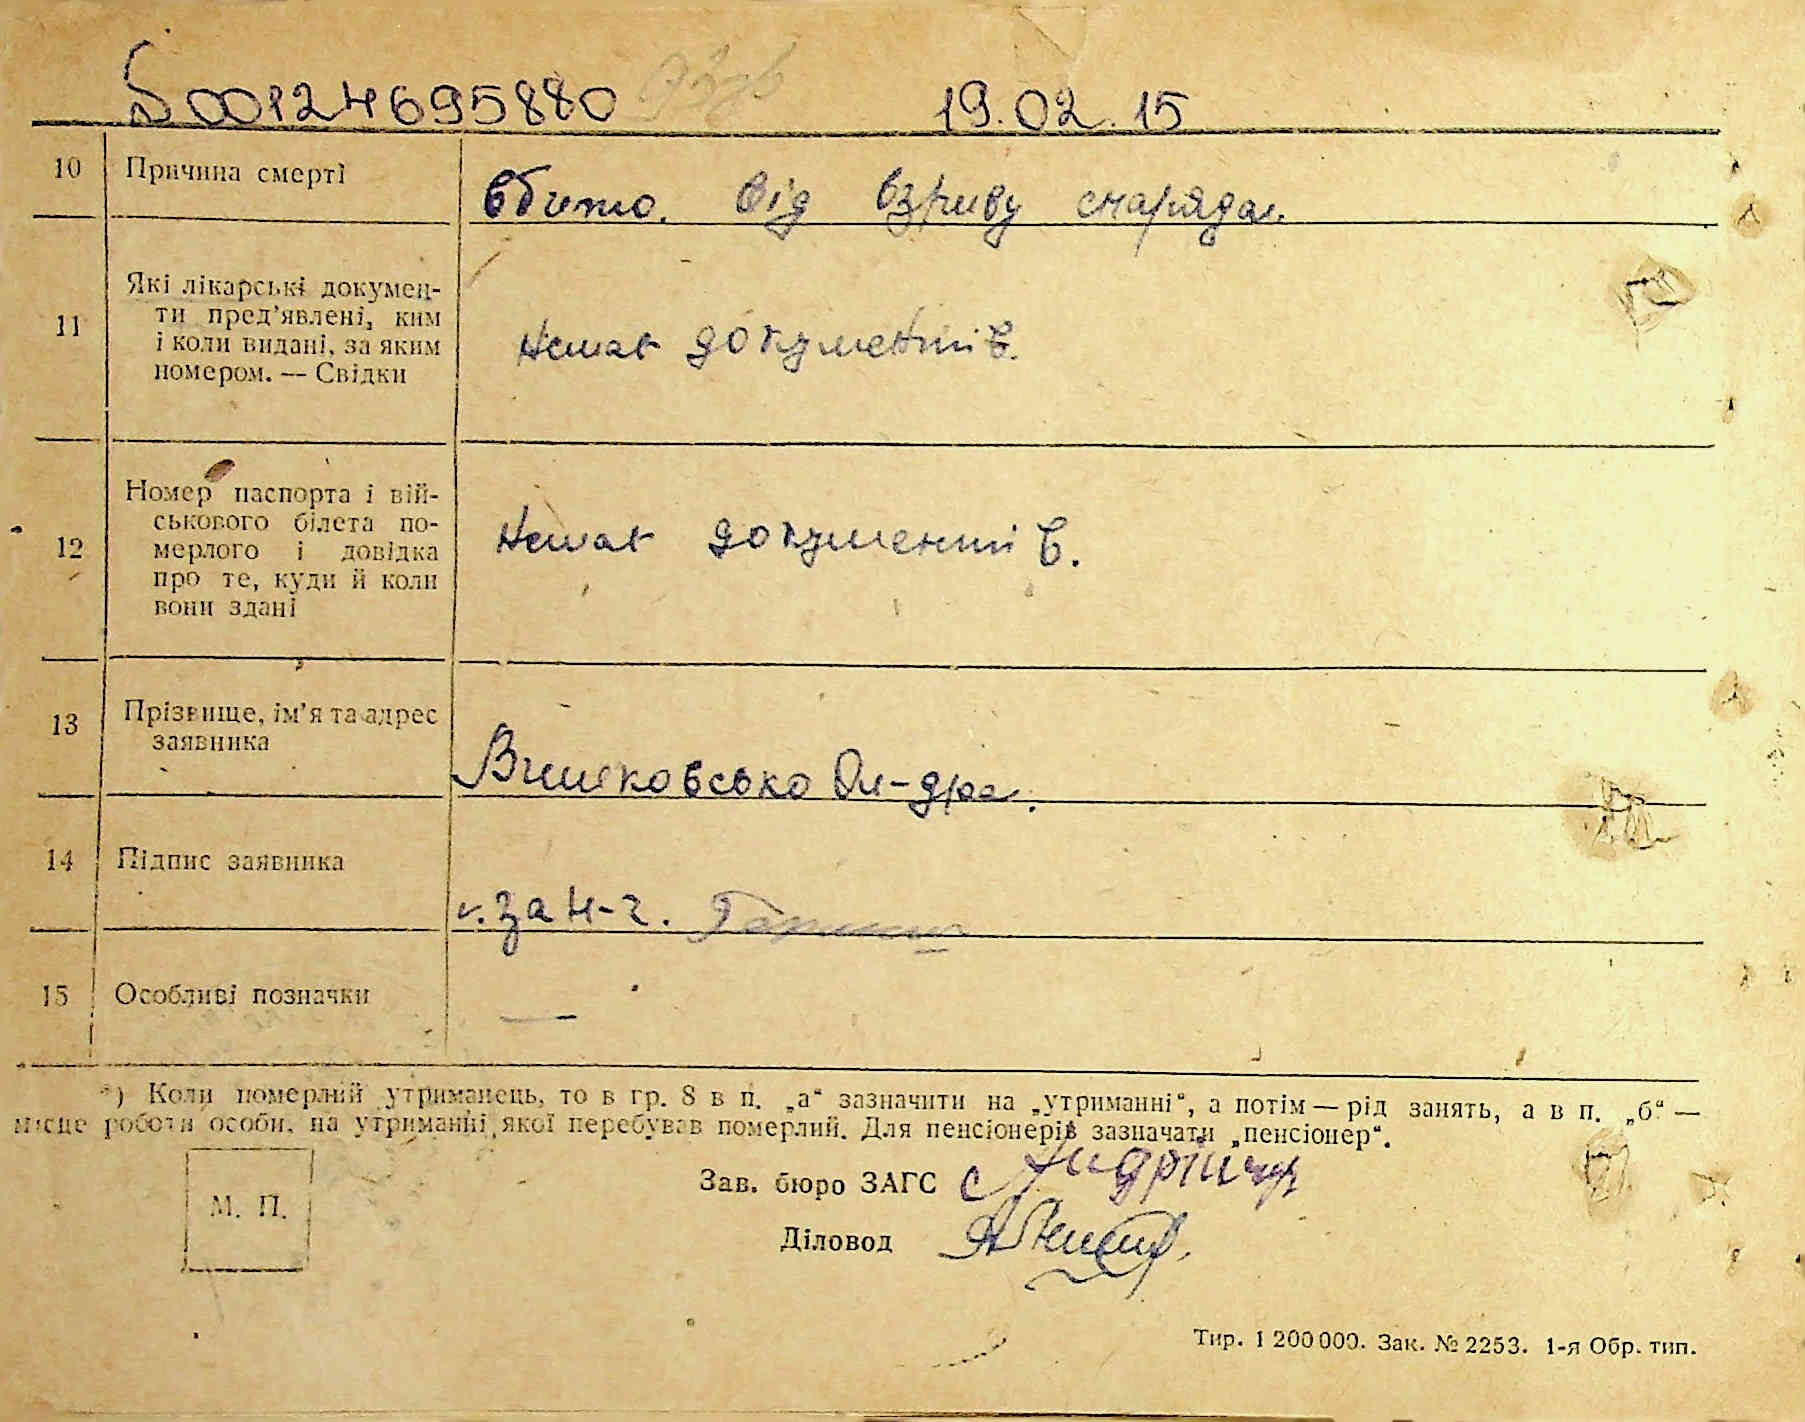 S00124695880 19.02.15
10 Причина смерті
вбито. від взриву снаряда.
11 Які лікарські докумен-
ти пред’явлені, ким
і коли видані, за яким
номером. — Свідки
Немає документів.
12 Номер паспорта і вій-
ськового білета по-
мерлого і довідка
про те, куди й коли
вони здані
Немає документів.
13 Прізвище, ім’я та адрес
заявника
Ол-дра.
14 Підпис заявника
за н-г.
15 Особливі позначки
—
*) Коли померлий утриманець, то в гр. 8 в п. „а“ зазначити на „утриманні“, а потім — рід занять, а в п. „б“ —
місце роботи особи, на утриманні якої перебував померлий. Для пенсіонерів зазначати „пенсіонер“.
М. П.
Зав. бюро ЗАГС
Діловод
Тир. 1 200 000. Зак. № 2253. 1-я Обр. тип.